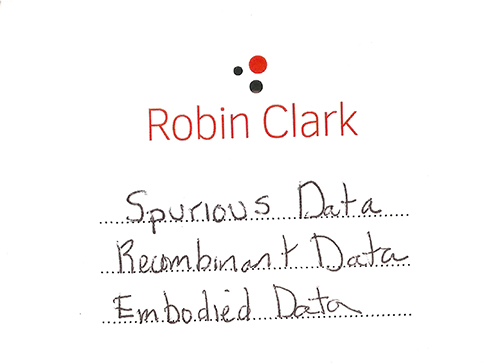 Robin Clark
Spurious Data
Recombinant Data
Embodied Data